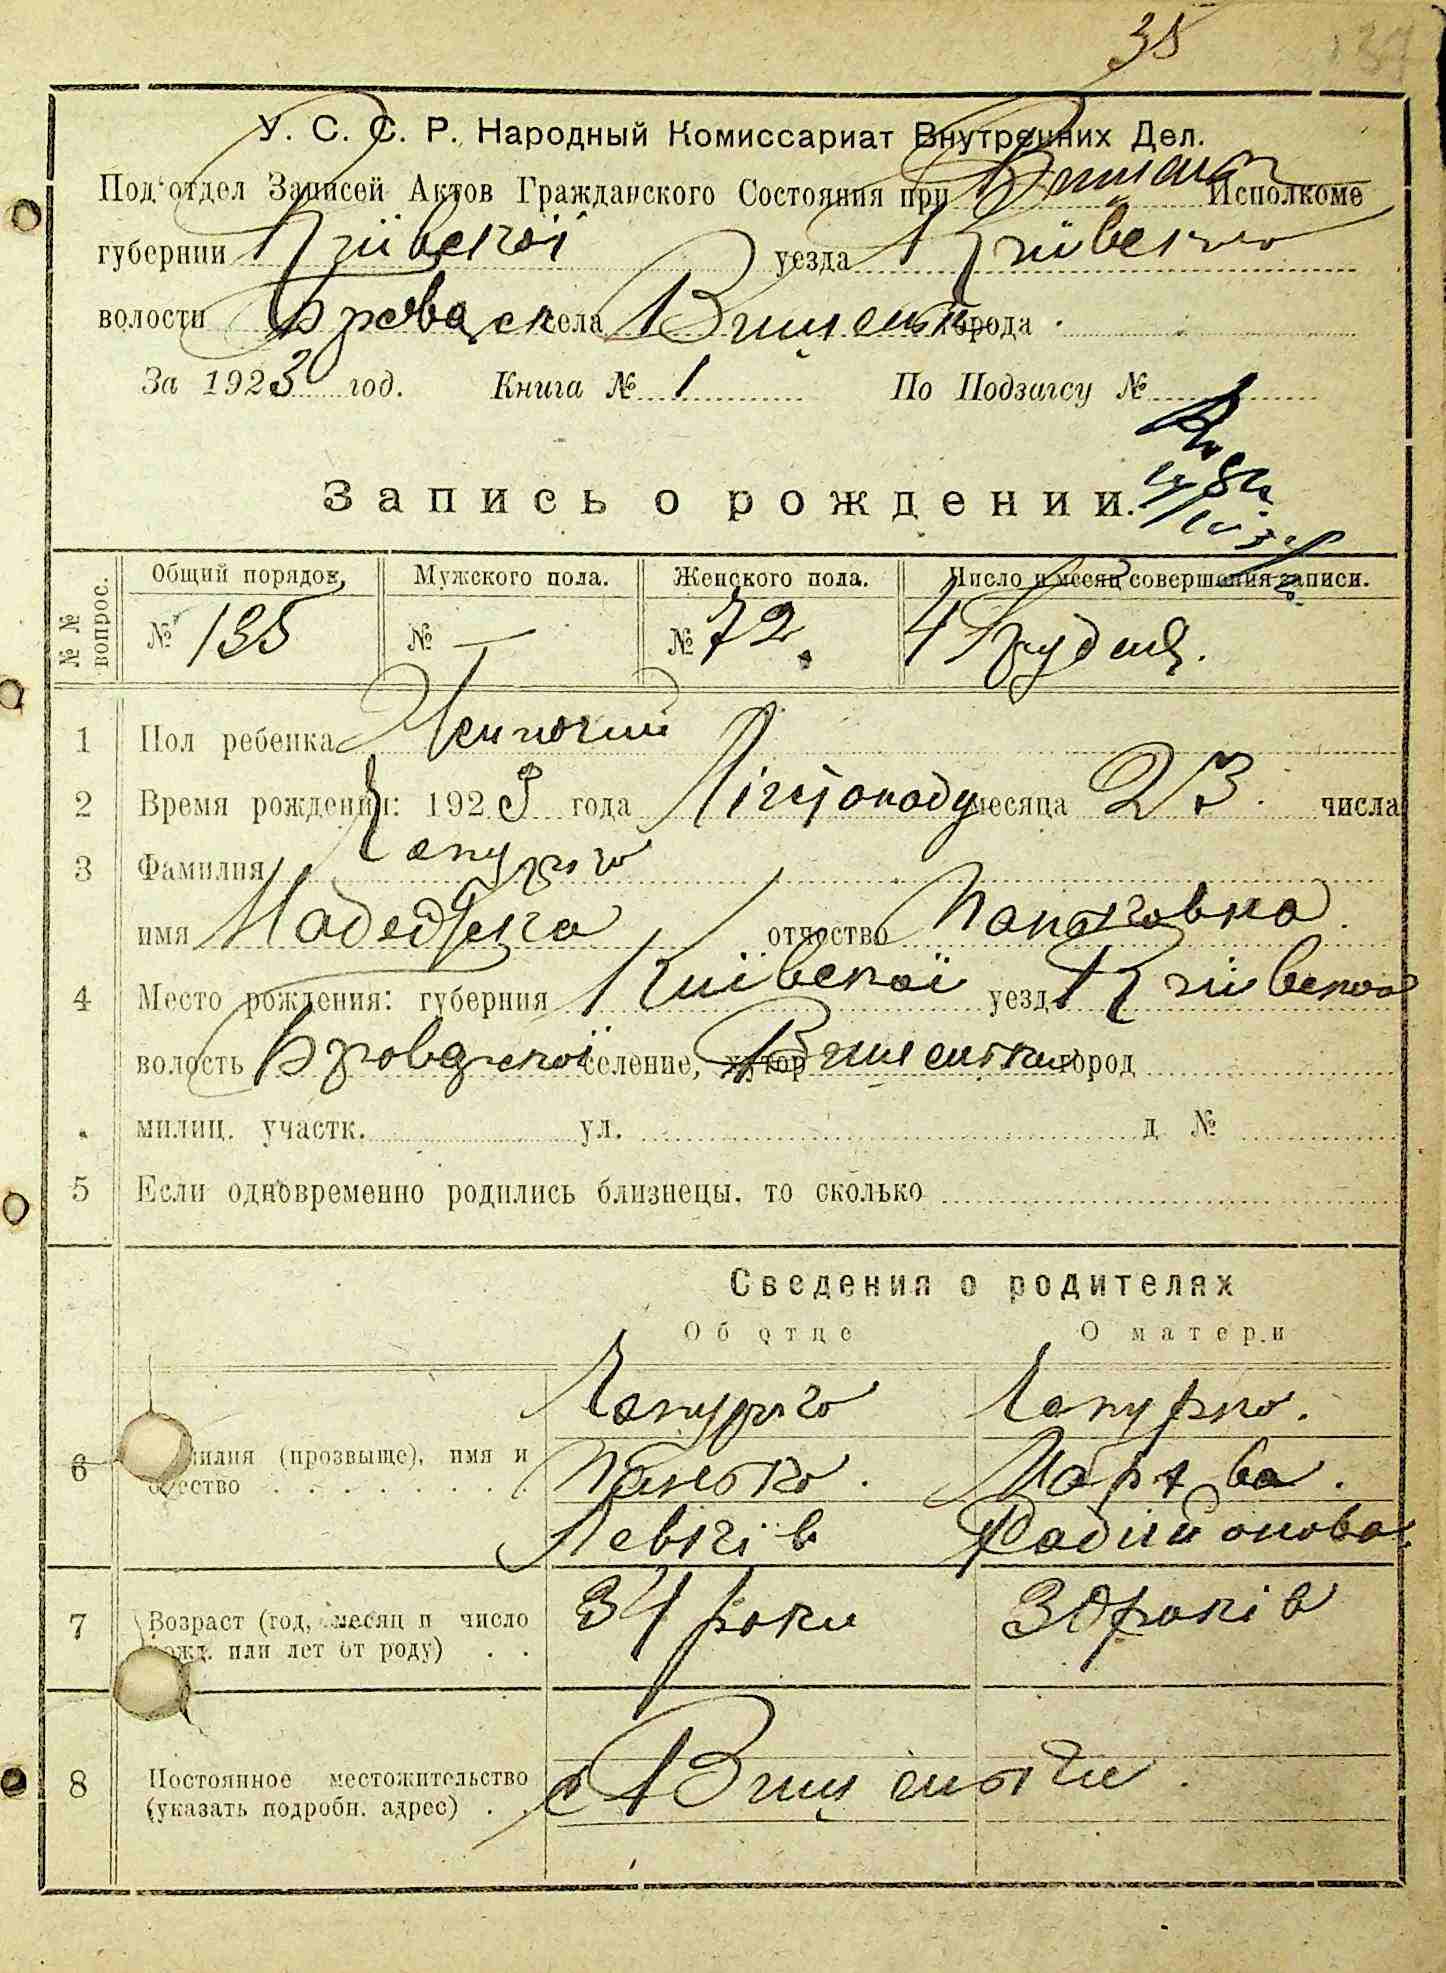 35
У. С. С. Р. Народный Комиссариат Внутренних Дел.
Под'отдел Записей Актов Гражданского Состояния при Вищеньк Исполкоме
губернии Київської уезда Київського
волости Броварск села Вищеньки города
За 1923 год. Книга № 1 По Подзагсу №
Запись о рождении.
№ № вопрос. Общий порядок, Мужского пола. Женского пола. Число и месяц совершения записи.
№ 135 № — № 72 4 Грудня.
1 Пол ребенка Жиночий
2 Время рождения: 1923 года Листопаду месяца 23 числа
3 Фамилия Чапурко
имя Надеджа отчество Паньковна
4 Место рождения: губерния Київської уезд Київсько
волость Броварської селение, хутор Вищеньки город
милиц. участк. ул. д №
5 Если одновременно родились близнецы, то сколько
Сведения о родителях
Об отце О матери
Чапурко Чапурко.
6 Фамилия (прозвыще), имя и Панько. Марфа.
отчество Левків Радийонова
7 Возраст (год, месяц и число 34 роки 30 років
рожд. или лет от роду) . .
8 Постоянное местожительство с Вищеньки.
(указать подробн. адрес) .